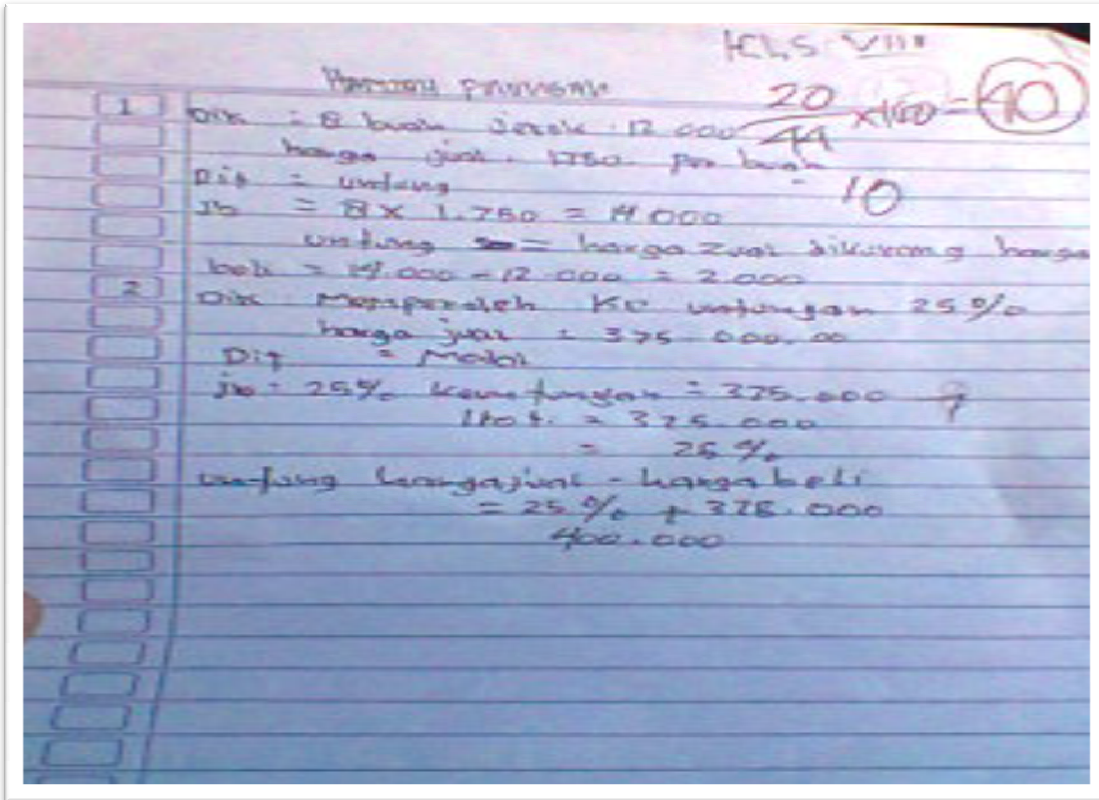 KLS VIII
20/44 x 100 = 40
1 Dik = 8 buah Jeruk . 12 000
harga jual . 1750 per buah
10
Dit = untung
Jb = 8 x 1.750 = 14.000
untung = harga Zual dikurang harga
beli = 14.000 - 12.000 = 2.000
2 Dik Memperoleh Ke untungan 25%
harga jual = 375.000.00
Dit = Modal
Jb = 25% keuntungan = 375.000
= 375.000
= 25%
untung hargajual - harga beli
= 25% + 375.000
400.000